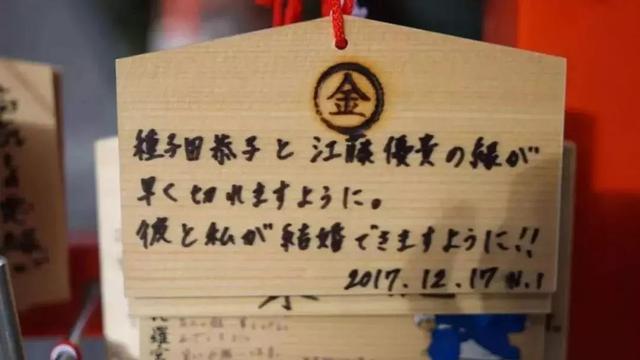 金
種子田恭子と江藤優貴の縁が
早く切れますように。
彼と私が結婚できますように!!
2017.12.17 N.I